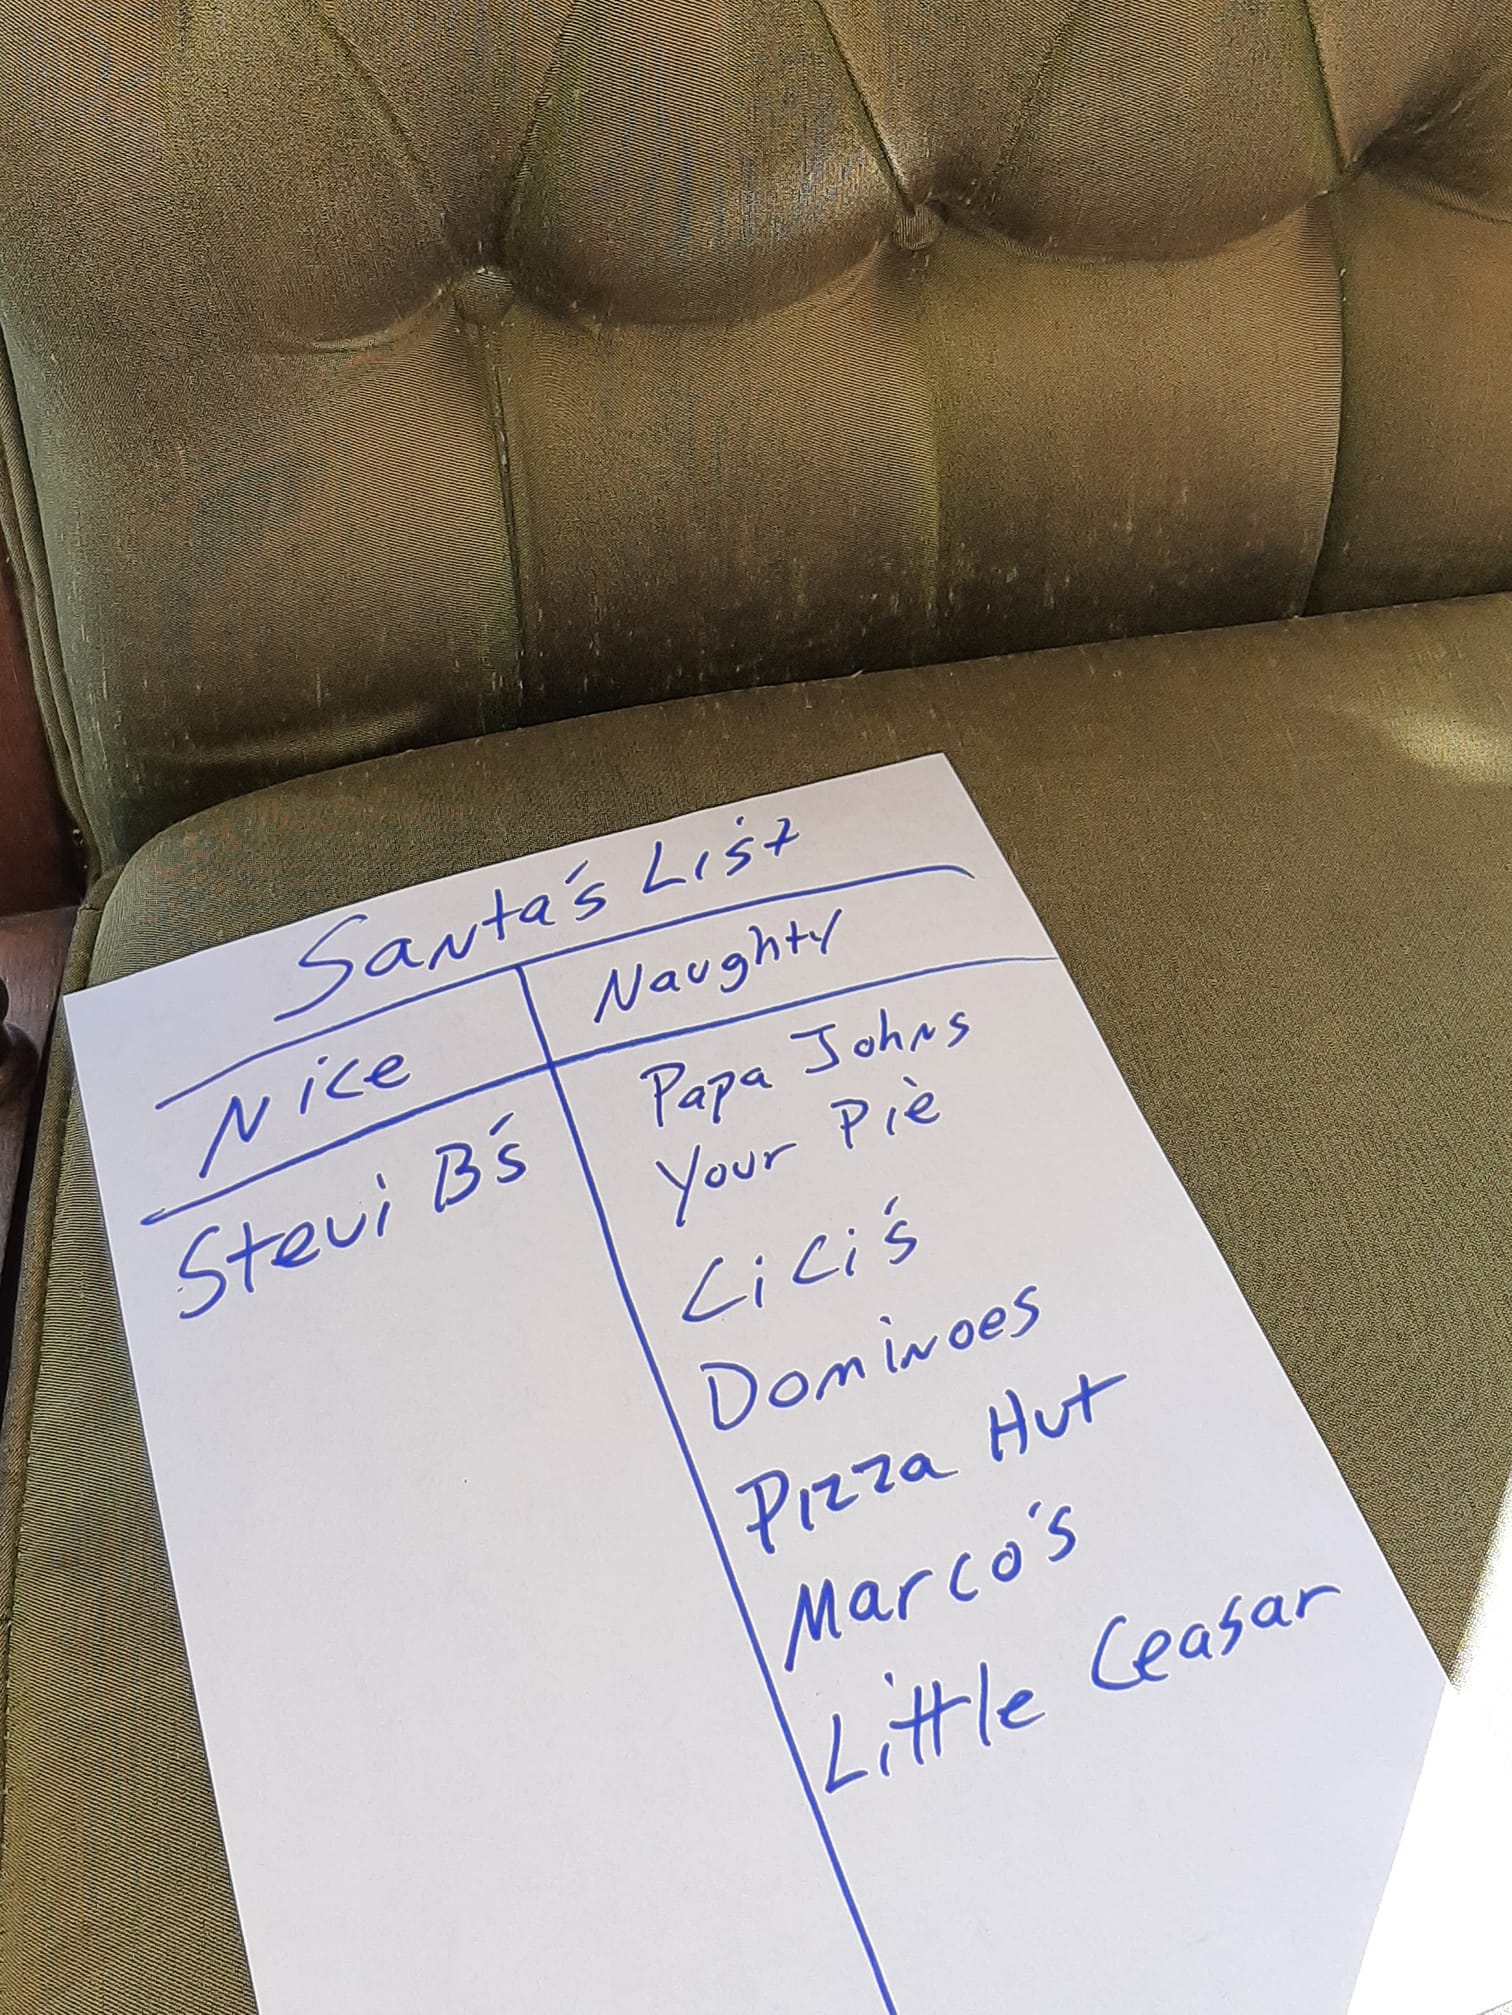 Santa's List
Nice
Naughty
Stevi B's
Papa Johns
Your Piè
CiCi's
Dominoes
Pizza Hut
Marco's
Little Ceasar